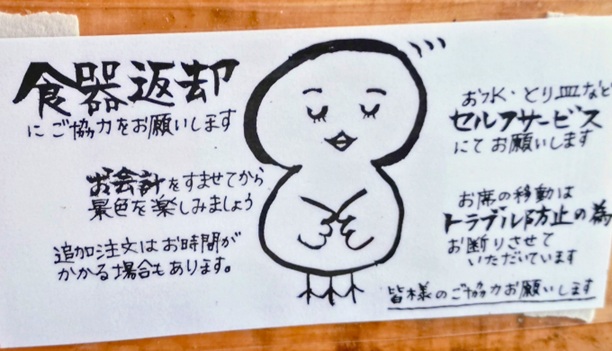 食器返却
にご協力をお願いします
お会計をすませてから
景色を楽しみましょう
追加注文はお時間が
かかる場合もあります。
お水・とり皿など
セルフサービス
にてお願いします
お席の移動は
トラブル防止の為
お断りさせて
いただいています
皆様のご協力お願いします